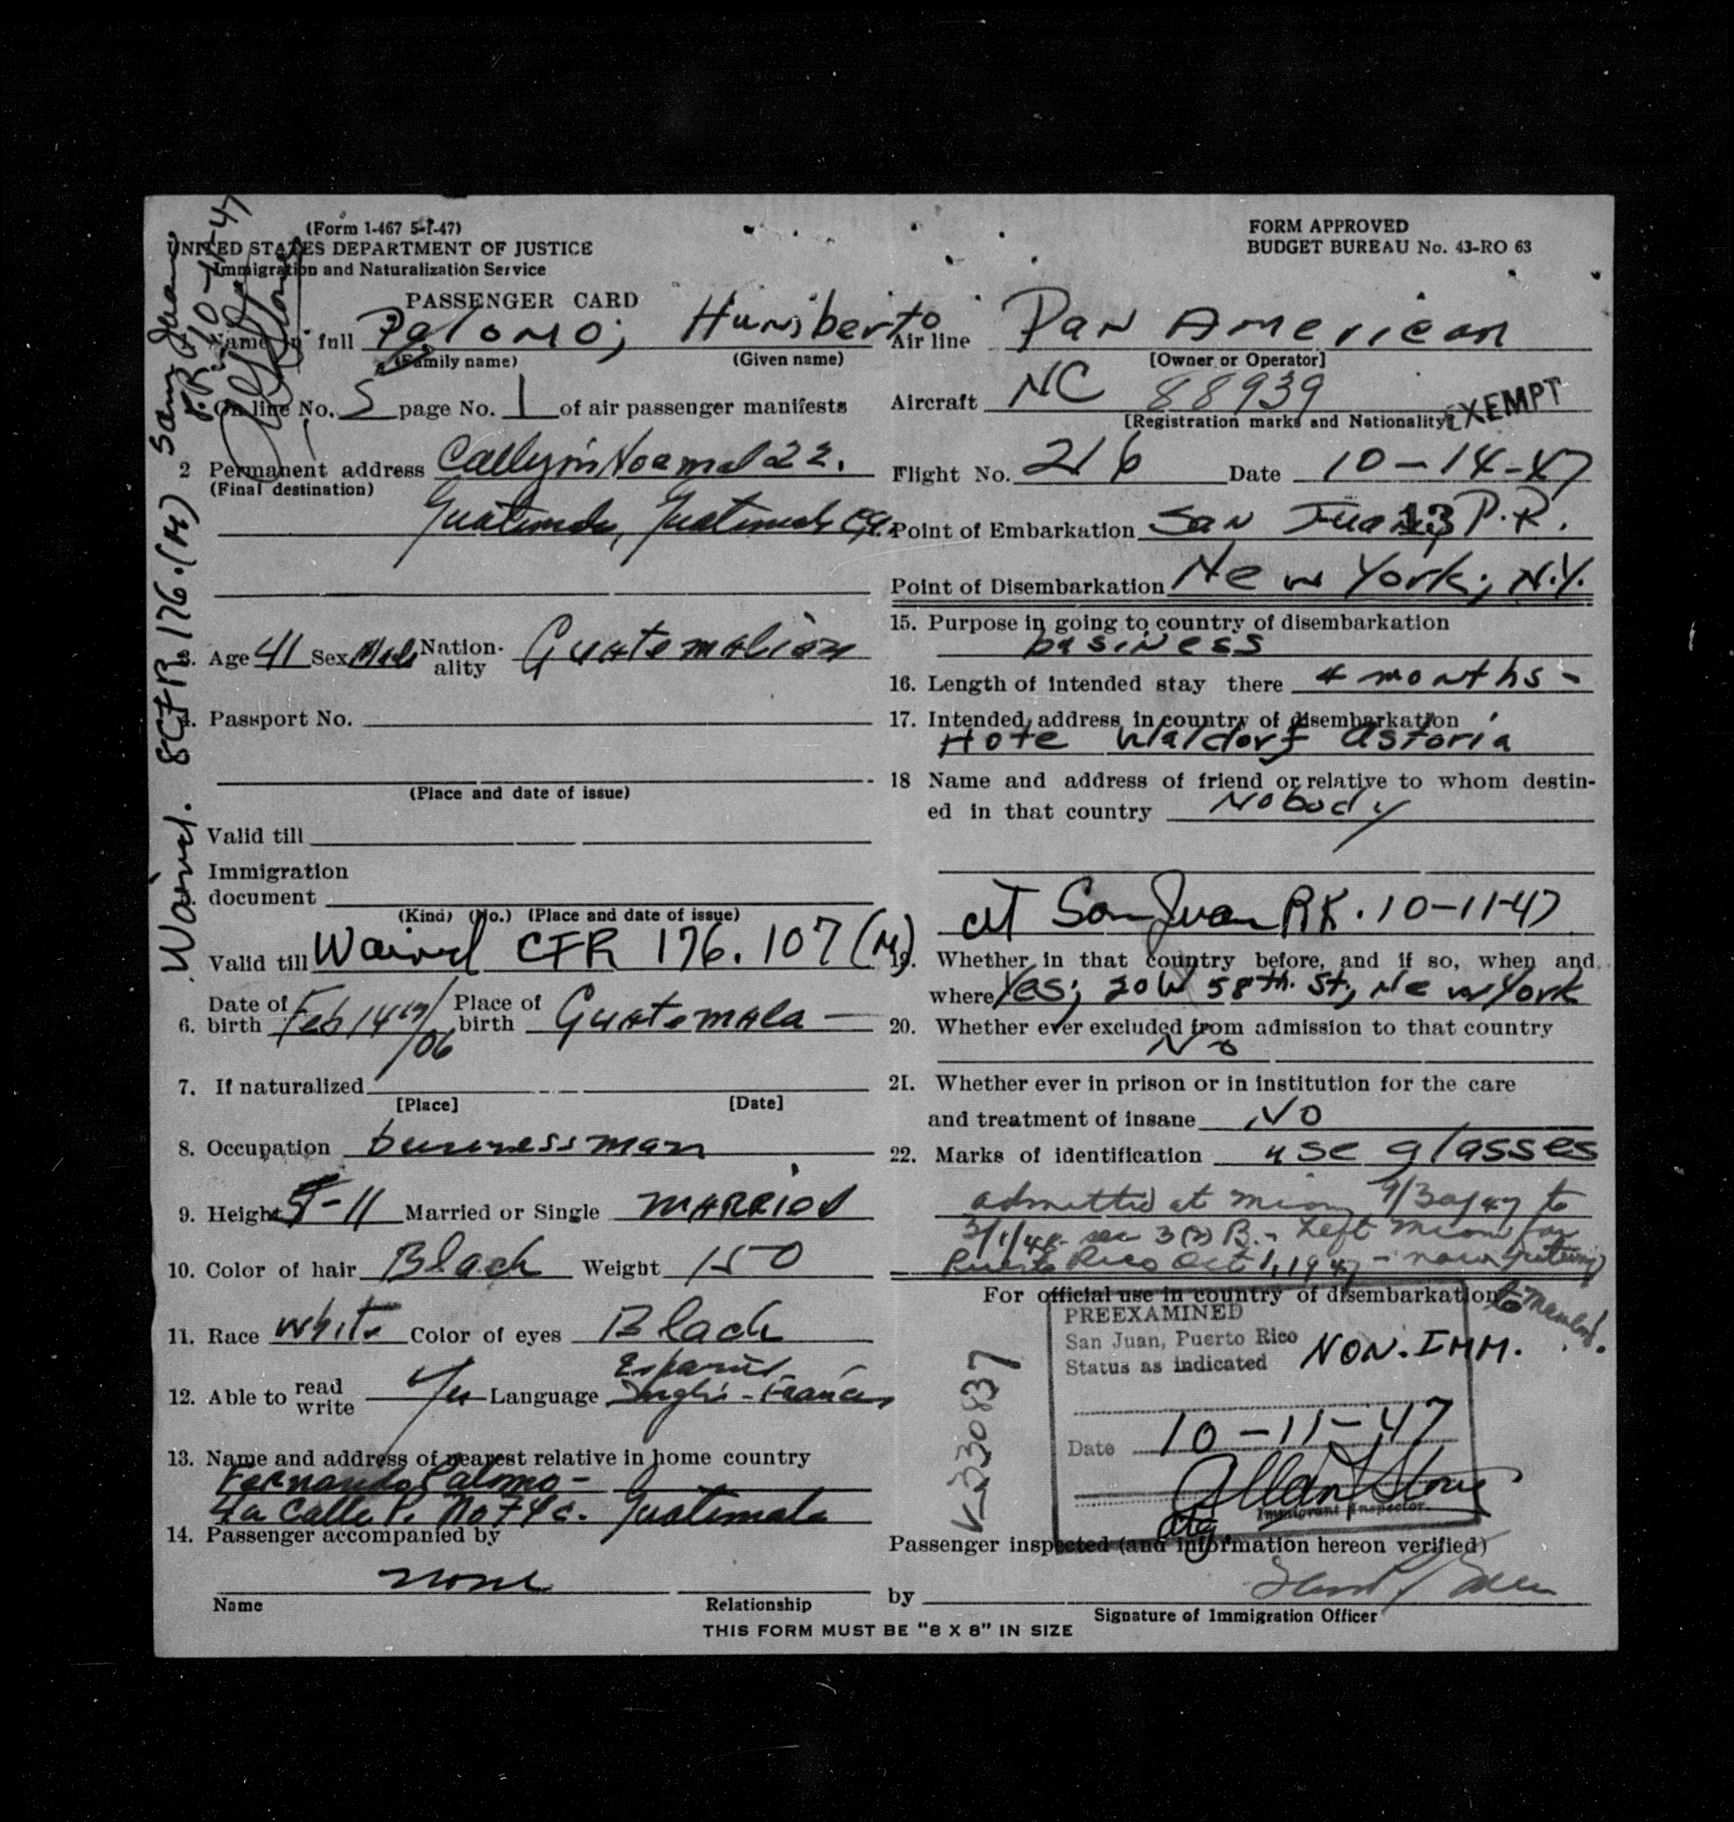 (Form I-467 5-1-47)
UNITED STATES DEPARTMENT OF JUSTICE
Immigration and Naturalization Service
PASSENGER CARD
Name in full Palomo; Humberto
(Family name) (Given name)
On line No. 5 page No. 1 of air passenger manifests
2 Permanent address 22.
(Final destination)
Guatemala, Guatemala
3. Age 41 Sex Male Nation-
ality Guatemalian
4. Passport No.
(Place and date of issue)
Valid till
Immigration
document
(Kind) (No.) (Place and date of issue)
Valid till Waived CFR 176.107 (M)
Date of
6. birth Feb 14th/06 Place of
birth Guatemala
7. If naturalized
[Place] [Date]
8. Occupation businessman
9. Height 5-11 Married or Single MARRIED
10. Color of hair Black Weight 150
11. Race White Color of eyes Black
12. Able to read
write Yes Language Español
Inglés - Francés
13. Name and address of nearest relative in home country
Fernando Palomo -
4a Calle P. No 74c. Guatemala
14. Passenger accompanied by
none
Name Relationship
THIS FORM MUST BE "8 X 8" IN SIZE
Waived. 8CFR 176.(M) San Juan
P.R. 10-11-47
FORM APPROVED
BUDGET BUREAU No. 43-RO 63
Air line Pan American
[Owner or Operator]
Aircraft NC 88939
[Registration marks and Nationality]
EXEMPT
Flight No. 216 Date 10-14-47
Point of Embarkation San Juan, P.R.
13
Point of Disembarkation New York; N.Y.
15. Purpose in going to country of disembarkation
business
16. Length of intended stay there 4 months-
17. Intended address in country of disembarkation
Hote Waldorf Astoria
18 Name and address of friend or relative to whom destin-
ed in that country Nobody
at San Juan P.R. 10-11-47
19. Whether in that country before, and if so, when and
where Yes; 20W 58th. St; New York
20. Whether ever excluded from admission to that country
No
21. Whether ever in prison or in institution for the care
and treatment of insane NO
22. Marks of identification use glasses
admitted at Miami 9/30/47 to
3/1/48 sec 3(2) B. - Left Miami for
Puerto Rico Oct 1, 1947 - now returning
to
For official use in country of disembarkation
PREEXAMINED
San Juan, Puerto Rico
Status as indicated NON-IMM.
Date 10-11-47
Allan Stone
Immigrant Inspector
V-330837
Passenger inspected (and information hereon verified)
by
Signature of Immigration Officer